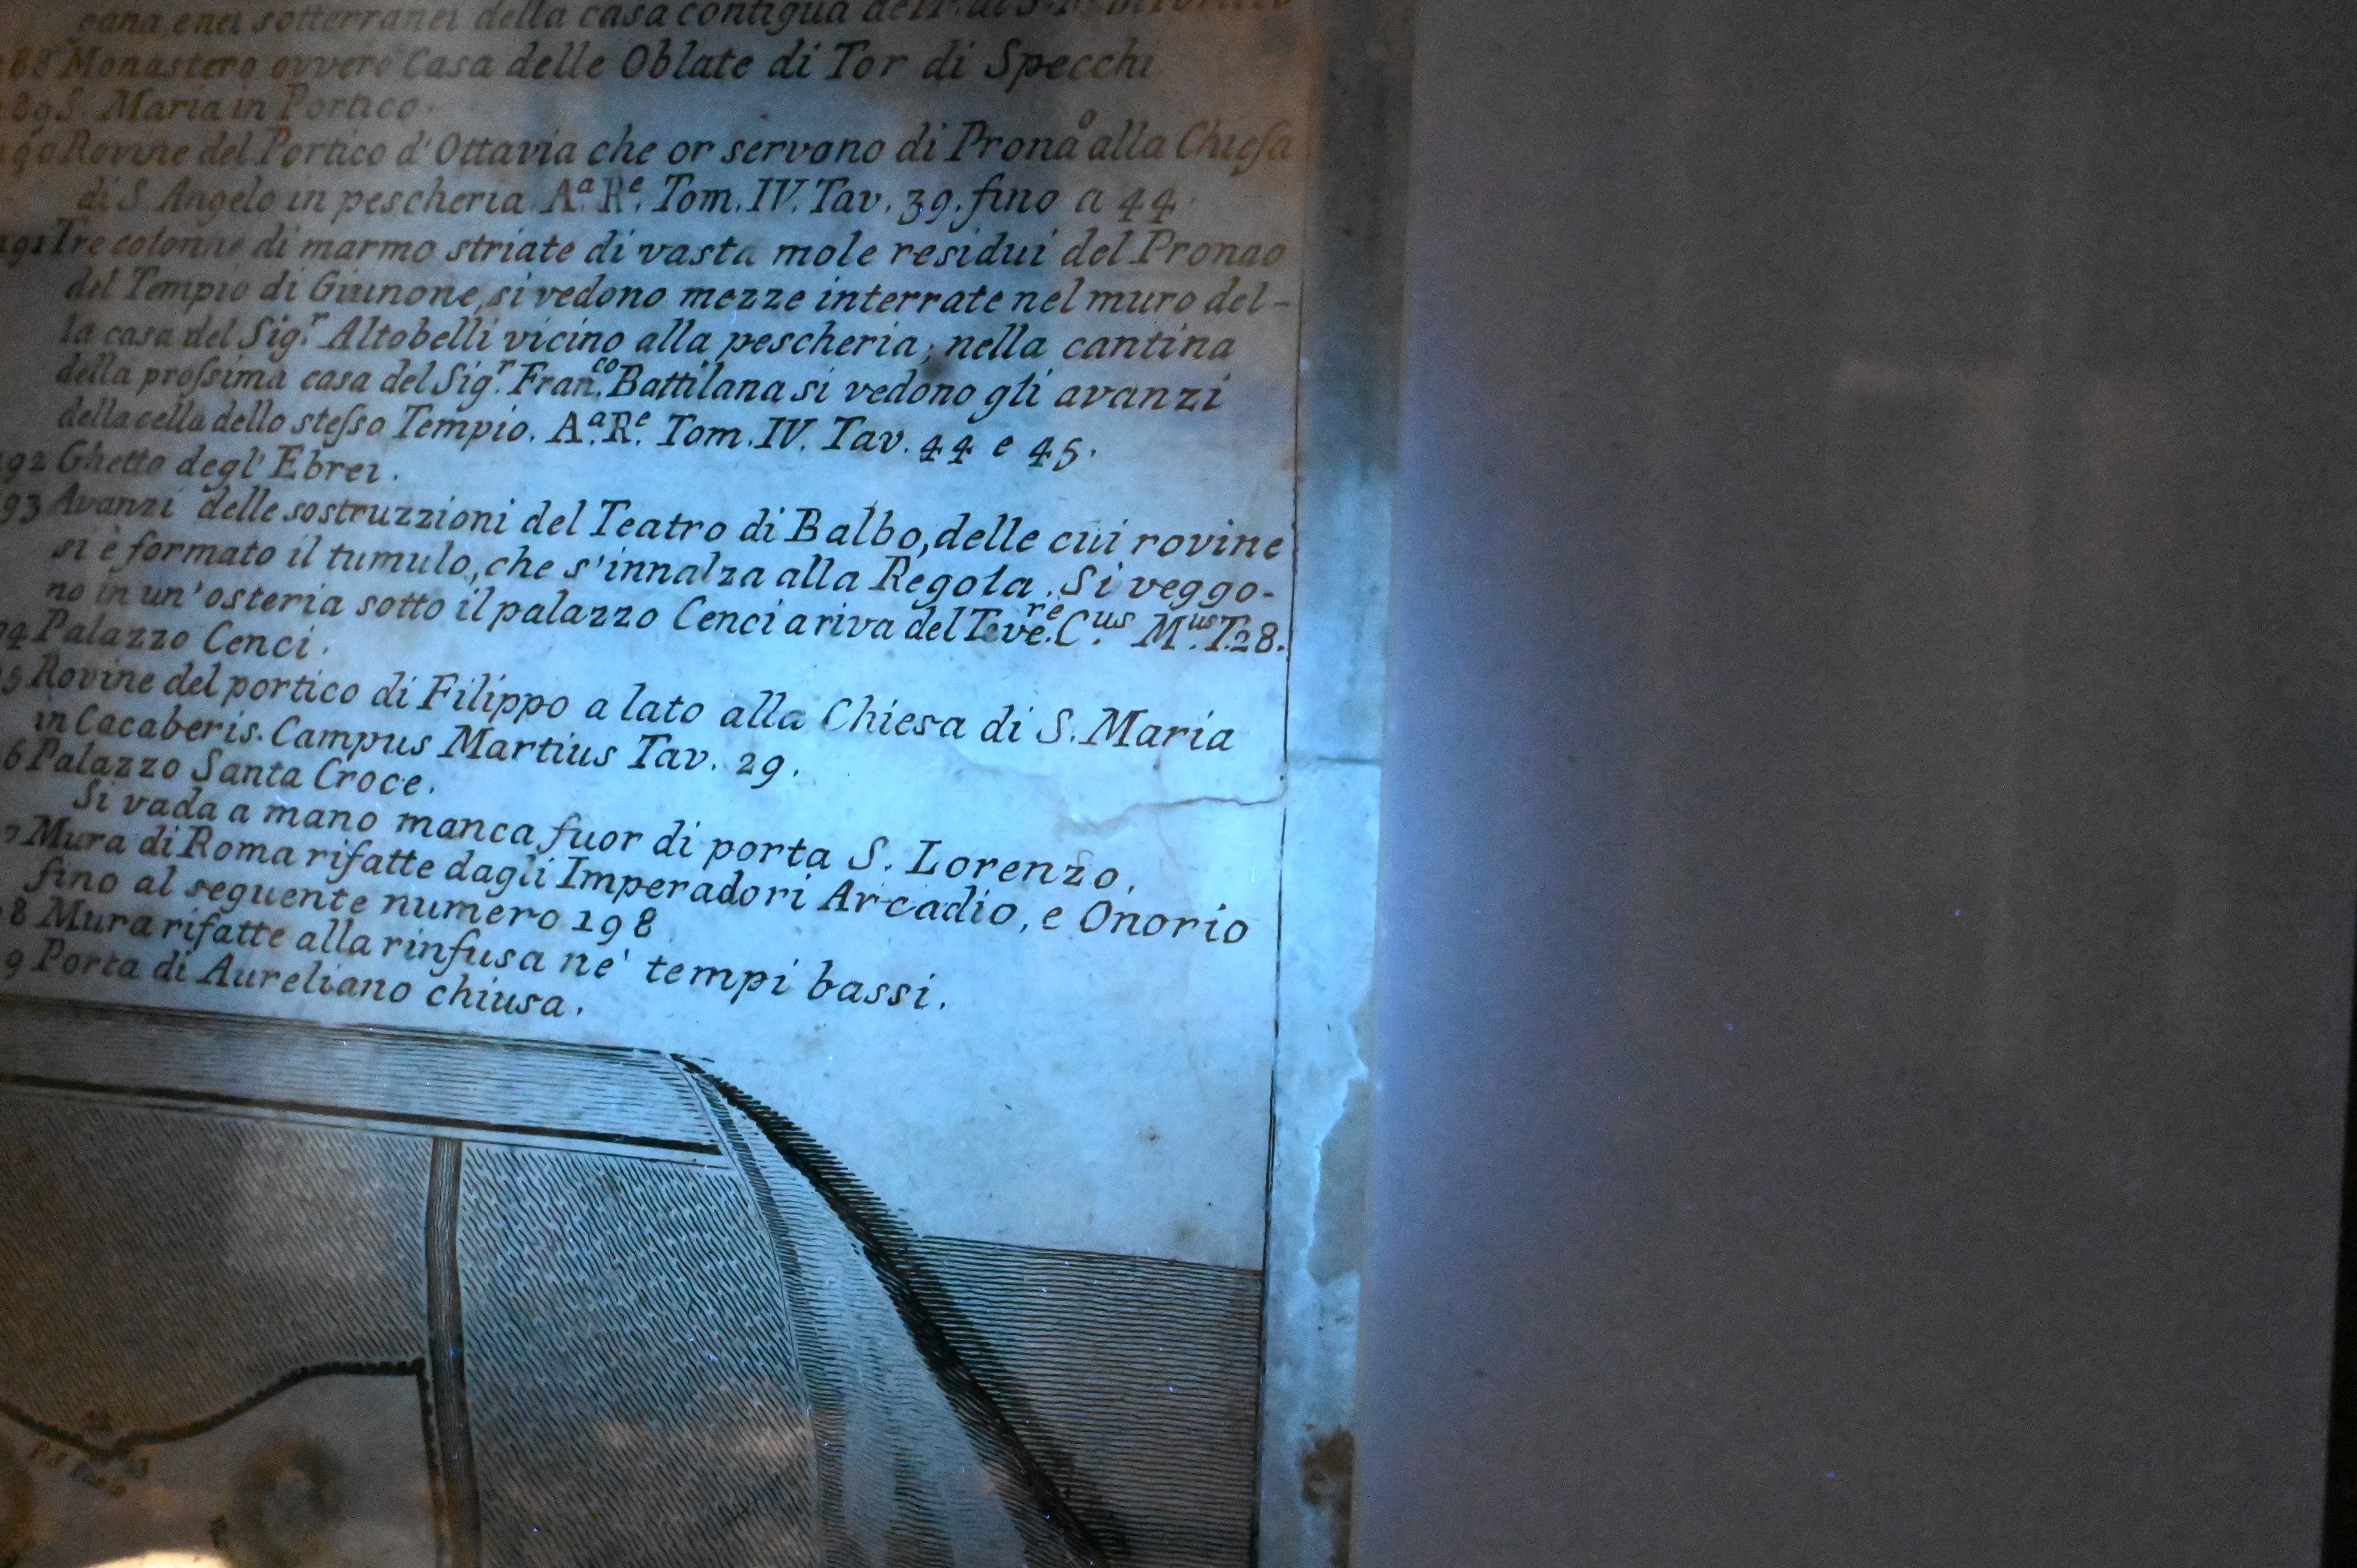 sotterranei della casa contigua
188 Monastero ovvero Casa delle Oblate di Tor di Specchi
189 S. Maria in Portico.
190 Rovine del Portico d'Ottavia che or servono di Pronaº alla Chieſa
di S. Angelo in pescheria. Aª. Rᵉ. Tom. IV. Tav. 39. fino a 44.
191 Tre colonne di marmo striate di vasta mole residui del Pronao
del Tempio di Giunone, si vedono mezze interrate nel muro del-
la casa del Sig.ʳ Altobelli vicino alla pescheria; nella cantina
della proſsima casa del Sig.ʳ Fran.ᶜᵒ Battilana si vedono gli avanzi
della cella dello steſso Tempio. Aª. Rᵉ. Tom. IV. Tav. 44 e 45.
192 Ghetto degl' Ebrei.
93 Avanzi delle sostruzzioni del Teatro di Balbo, delle cui rovine
si è formato il tumulo, che s'innalza alla Regola. Si veggo-
no in un'osteria sotto il palazzo Cenci a riva del Tevere. C.ᵘˢ M.ᵘˢ T. 28.
94 Palazzo Cenci.
5 Rovine del portico di Filippo a lato alla Chiesa di S. Maria
in Cacaberis. Campus Martius Tav. 29.
6 Palazzo Santa Croce.
Si vada a mano manca fuor di porta S. Lorenzo.
7 Mura di Roma rifatte dagli Imperadori Arcadio, e Onorio
fino al seguente numero 198
8 Mura rifatte alla rinfusa ne' tempi bassi.
9 Porta di Aureliano chiusa.